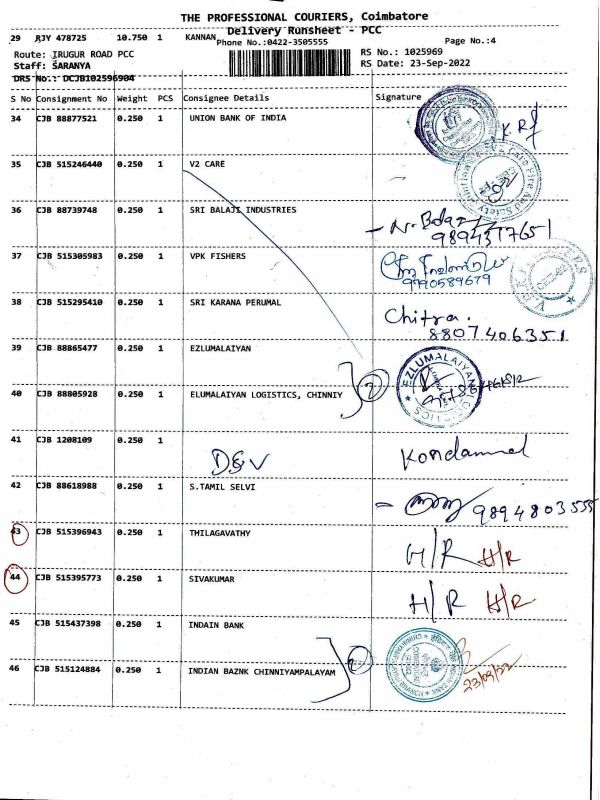 THE PROFESSIONAL COURIERS, Coimbatore
Delivery Runsheet - PCC
29 RJY 478725 10.750 1 KANNAN
Phone No.:0422-3505555 Page No.:4
Route: IRUGUR ROAD PCC RS No.: 1025969
Staff: SARANYA RS Date: 23-Sep-2022
DRS No.: DCJB102596904
S No Consignment No Weight PCS Consignee Details Signature
34 CJB 88877521 0.250 1 UNION BANK OF INDIA
35 CJB 515246440 0.250 1 V2 CARE
36 CJB 88739748 0.250 1 SRI BALAJI INDUSTRIES
9894317651
37 CJB 515305983 0.250 1 VPK FISHERS
9790589679
38 CJB 515295410 0.250 1 SRI KARANA PERUMAL Chitra.
8807406351
39 CJB 88865477 0.250 1 EZLUMALAIYAN
EZLUMALAIYAN LOGISTICS
40 CJB 88805928 0.250 1 ELUMALAIYAN LOGISTICS, CHINNIY 2
41 CJB 1208109 0.250 1
D&V
42 CJB 88618988 0.250 1 S.TAMIL SELVI
9894803555
43 CJB 515396943 0.250 1 THILAGAVATHY H/R H/R
44 CJB 515395773 0.250 1 SIVAKUMAR H/R H/R
45 CJB 515437398 0.250 1 INDAIN BANK
46 CJB 515124884 0.250 1 INDIAN BAZNK CHINNIYAMPALAYAM 2
23/09/22